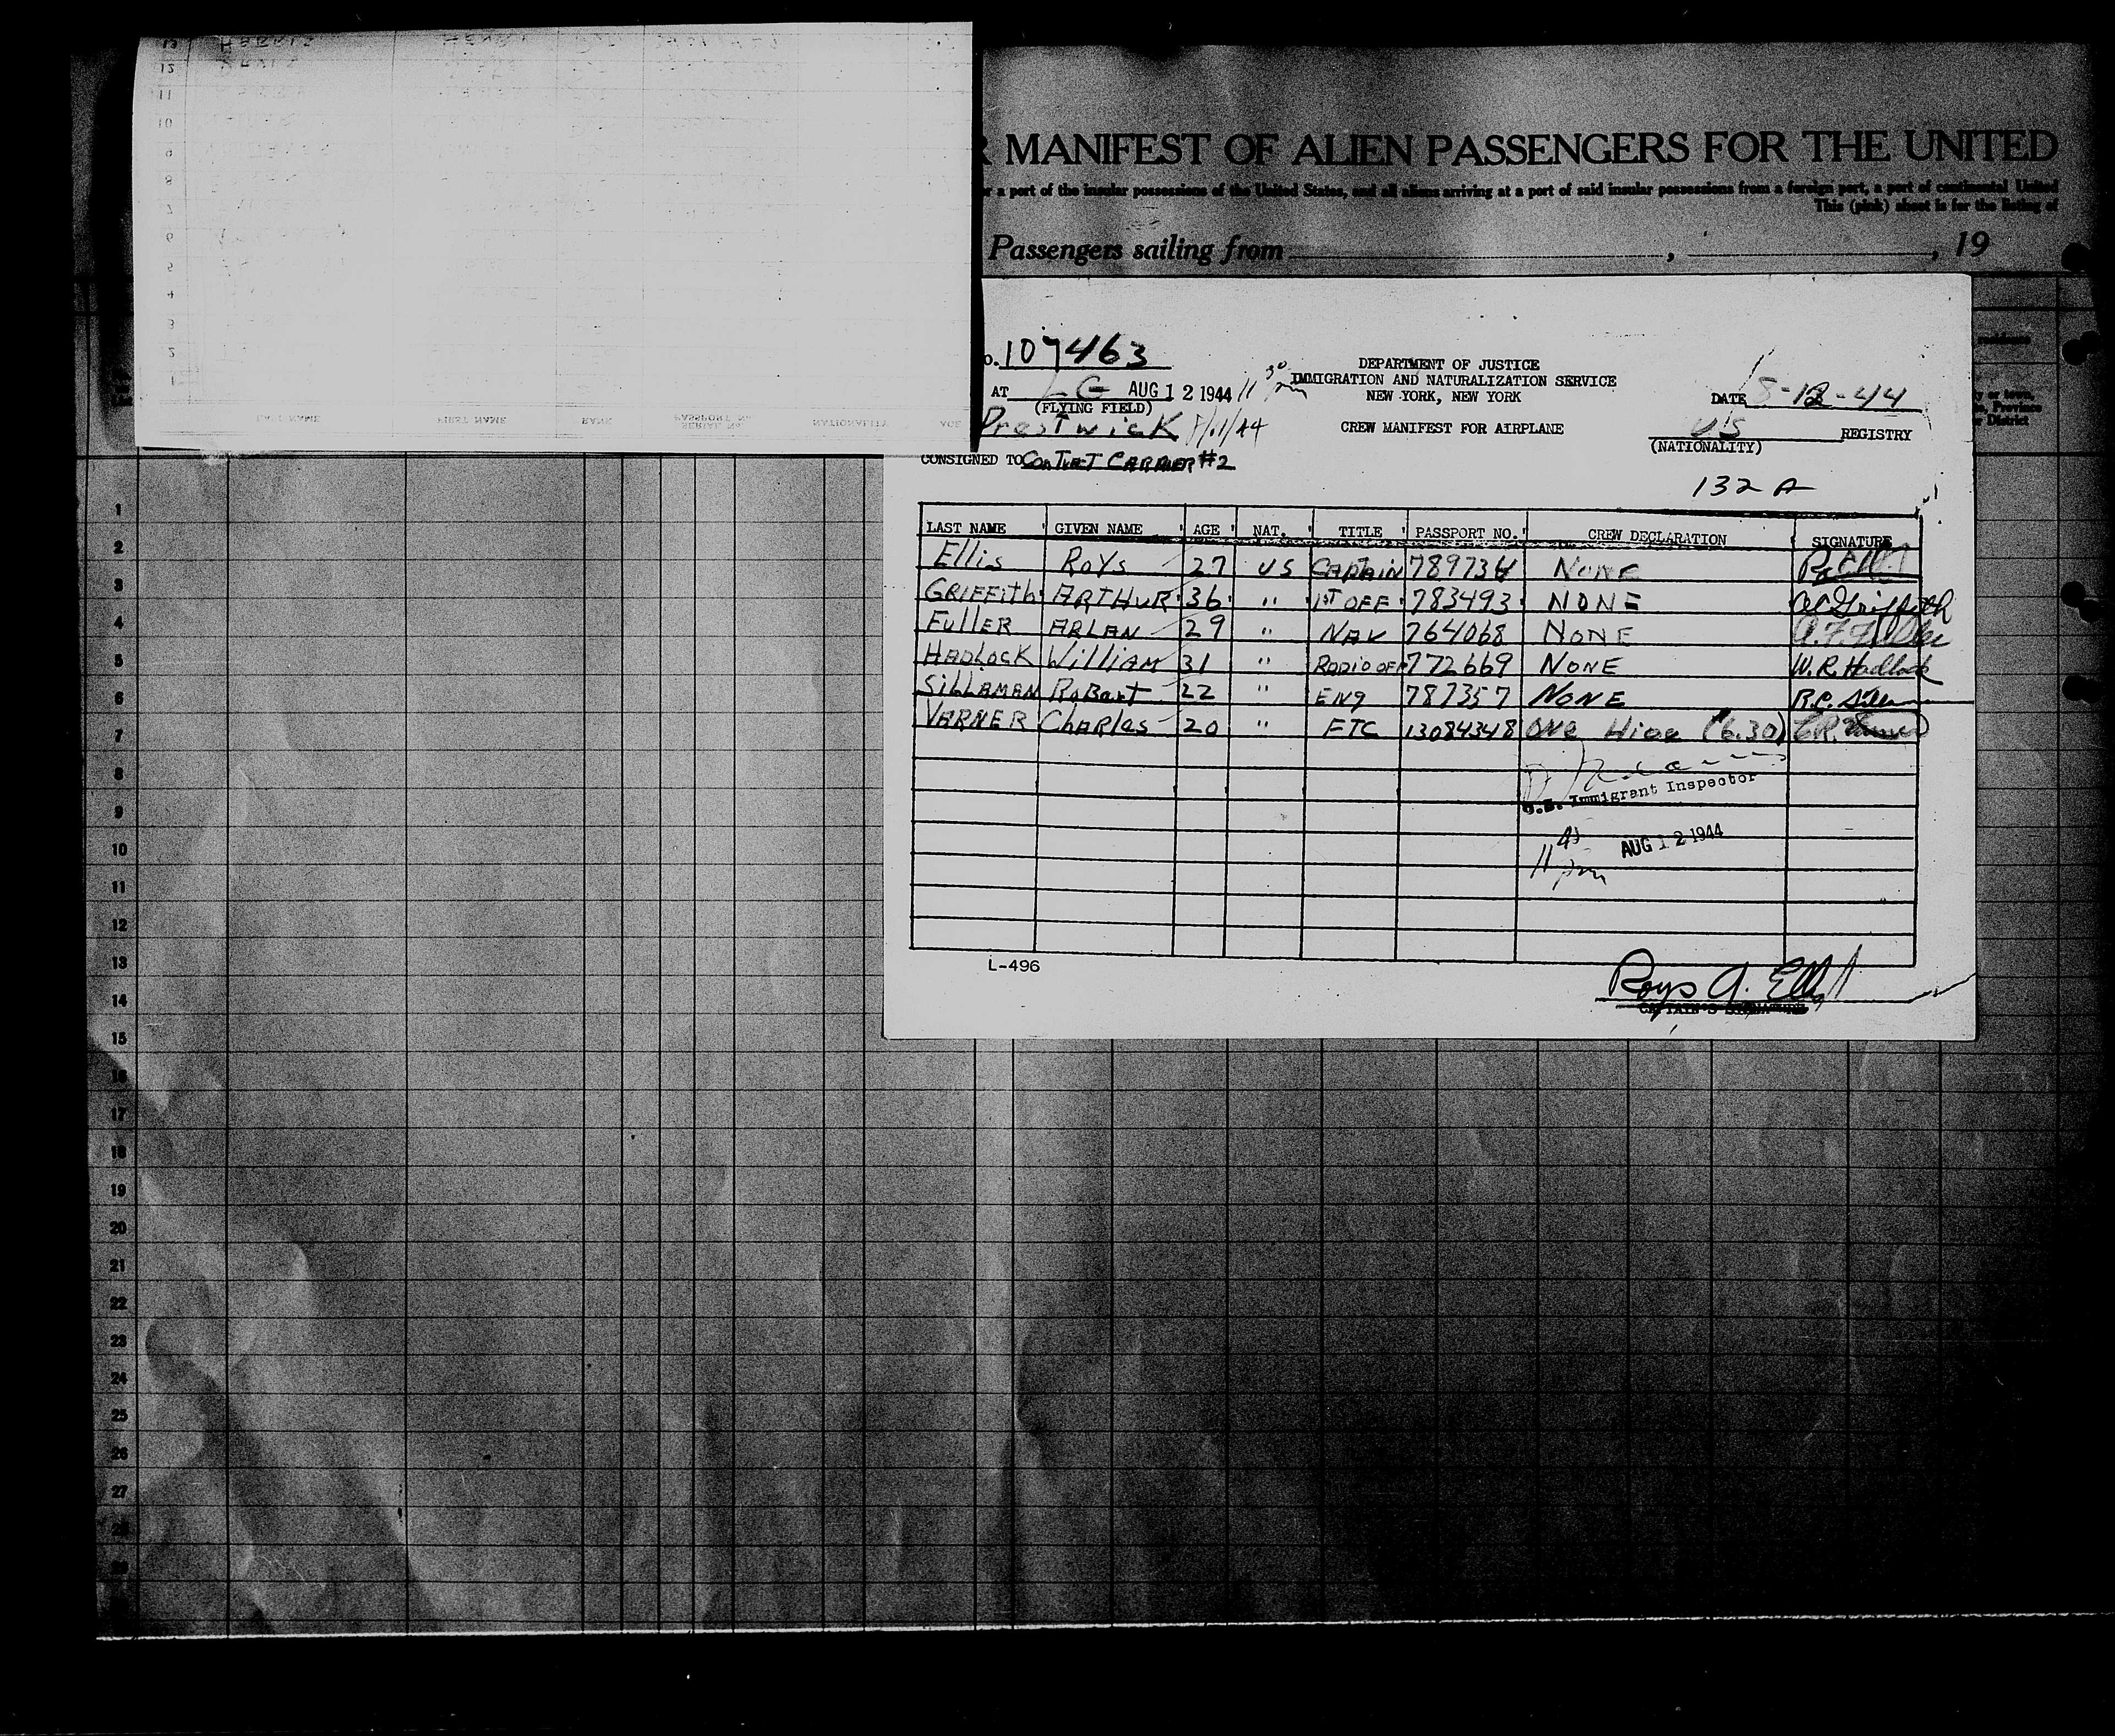 R MANIFEST OF ALIEN PASSENGERS FOR THE UNITED
or a port of the insular possessions of the United States, and all aliens arriving at a port of said insular possessions from a foreign port, a port of continental United
This (pink) sheet is for the listing of
Passengers sailing from , , 19
o. 107463
DEPARTMENT OF JUSTICE
AT LG AUG 12 1944 11 30 pm IMMIGRATION AND NATURALIZATION SERVICE
(FLYING FIELD) NEW YORK, NEW YORK DATE 8-12-44
Prestwick 8/11/44 CREW MANIFEST FOR AIRPLANE US REGISTRY
(NATIONALITY)
CONSIGNED TO CARRIER #2
132 A
LAST NAME GIVEN NAME AGE NAT. TITLE PASSPORT NO. CREW DECLARATION SIGNATURE
Ellis RoYs 27 US CAPtAiN NONE
GRIFFith ARTHUR 36 " 1ST OFF 783493 NONE AC Griffith
FullER ARLAN 29 " NAV 764068 NONE
HADLOCK WilliAM 31 " RADIO OFF 772669 NONE W.R. Hadlock
SillAMAN RoBart 22 " ENg 787357 NONE
VARNER ChARles 20 " FTC 13084348 ONe (6.30)
U.S. Immigrant Inspector
11 45 pm AUG 12 1944
L-496
Roys A. Ellis
CAPTAIN'S SIGNATURE
LAST NAME FIRST NAME RANK SERIAL No. PASSPORT No. NATIONALITY AGE
1
2
3
4
5
6
7
8
9
10
11
12
13
1
2
3
4
5
6
7
8
9
10
11
12
13
14
15
16
17
18
19
20
21
22
23
24
25
26
27
28